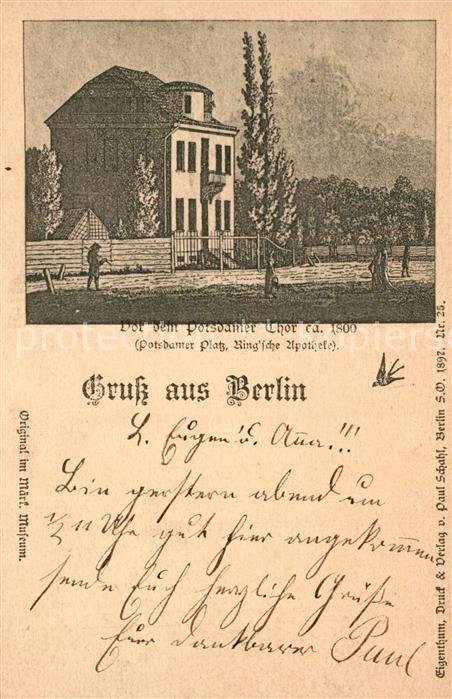 Vor dem Potsdamer Thor ca. 1800
(Potsdamer Platz, Ring'sche Apotheke).
Gruß aus Berlin
L. Eugen u. Anna!!!
Bin gerstern abend um
½ 11 Uhr gut hier angekommen
sende Euch herzliche Grüße
Euer dankbarer Paul
Original im Märk. Museum.
Eigenthum, Druck & Verlag v. Paul Schahl, Berlin S.O. 1897. Nr. 25.